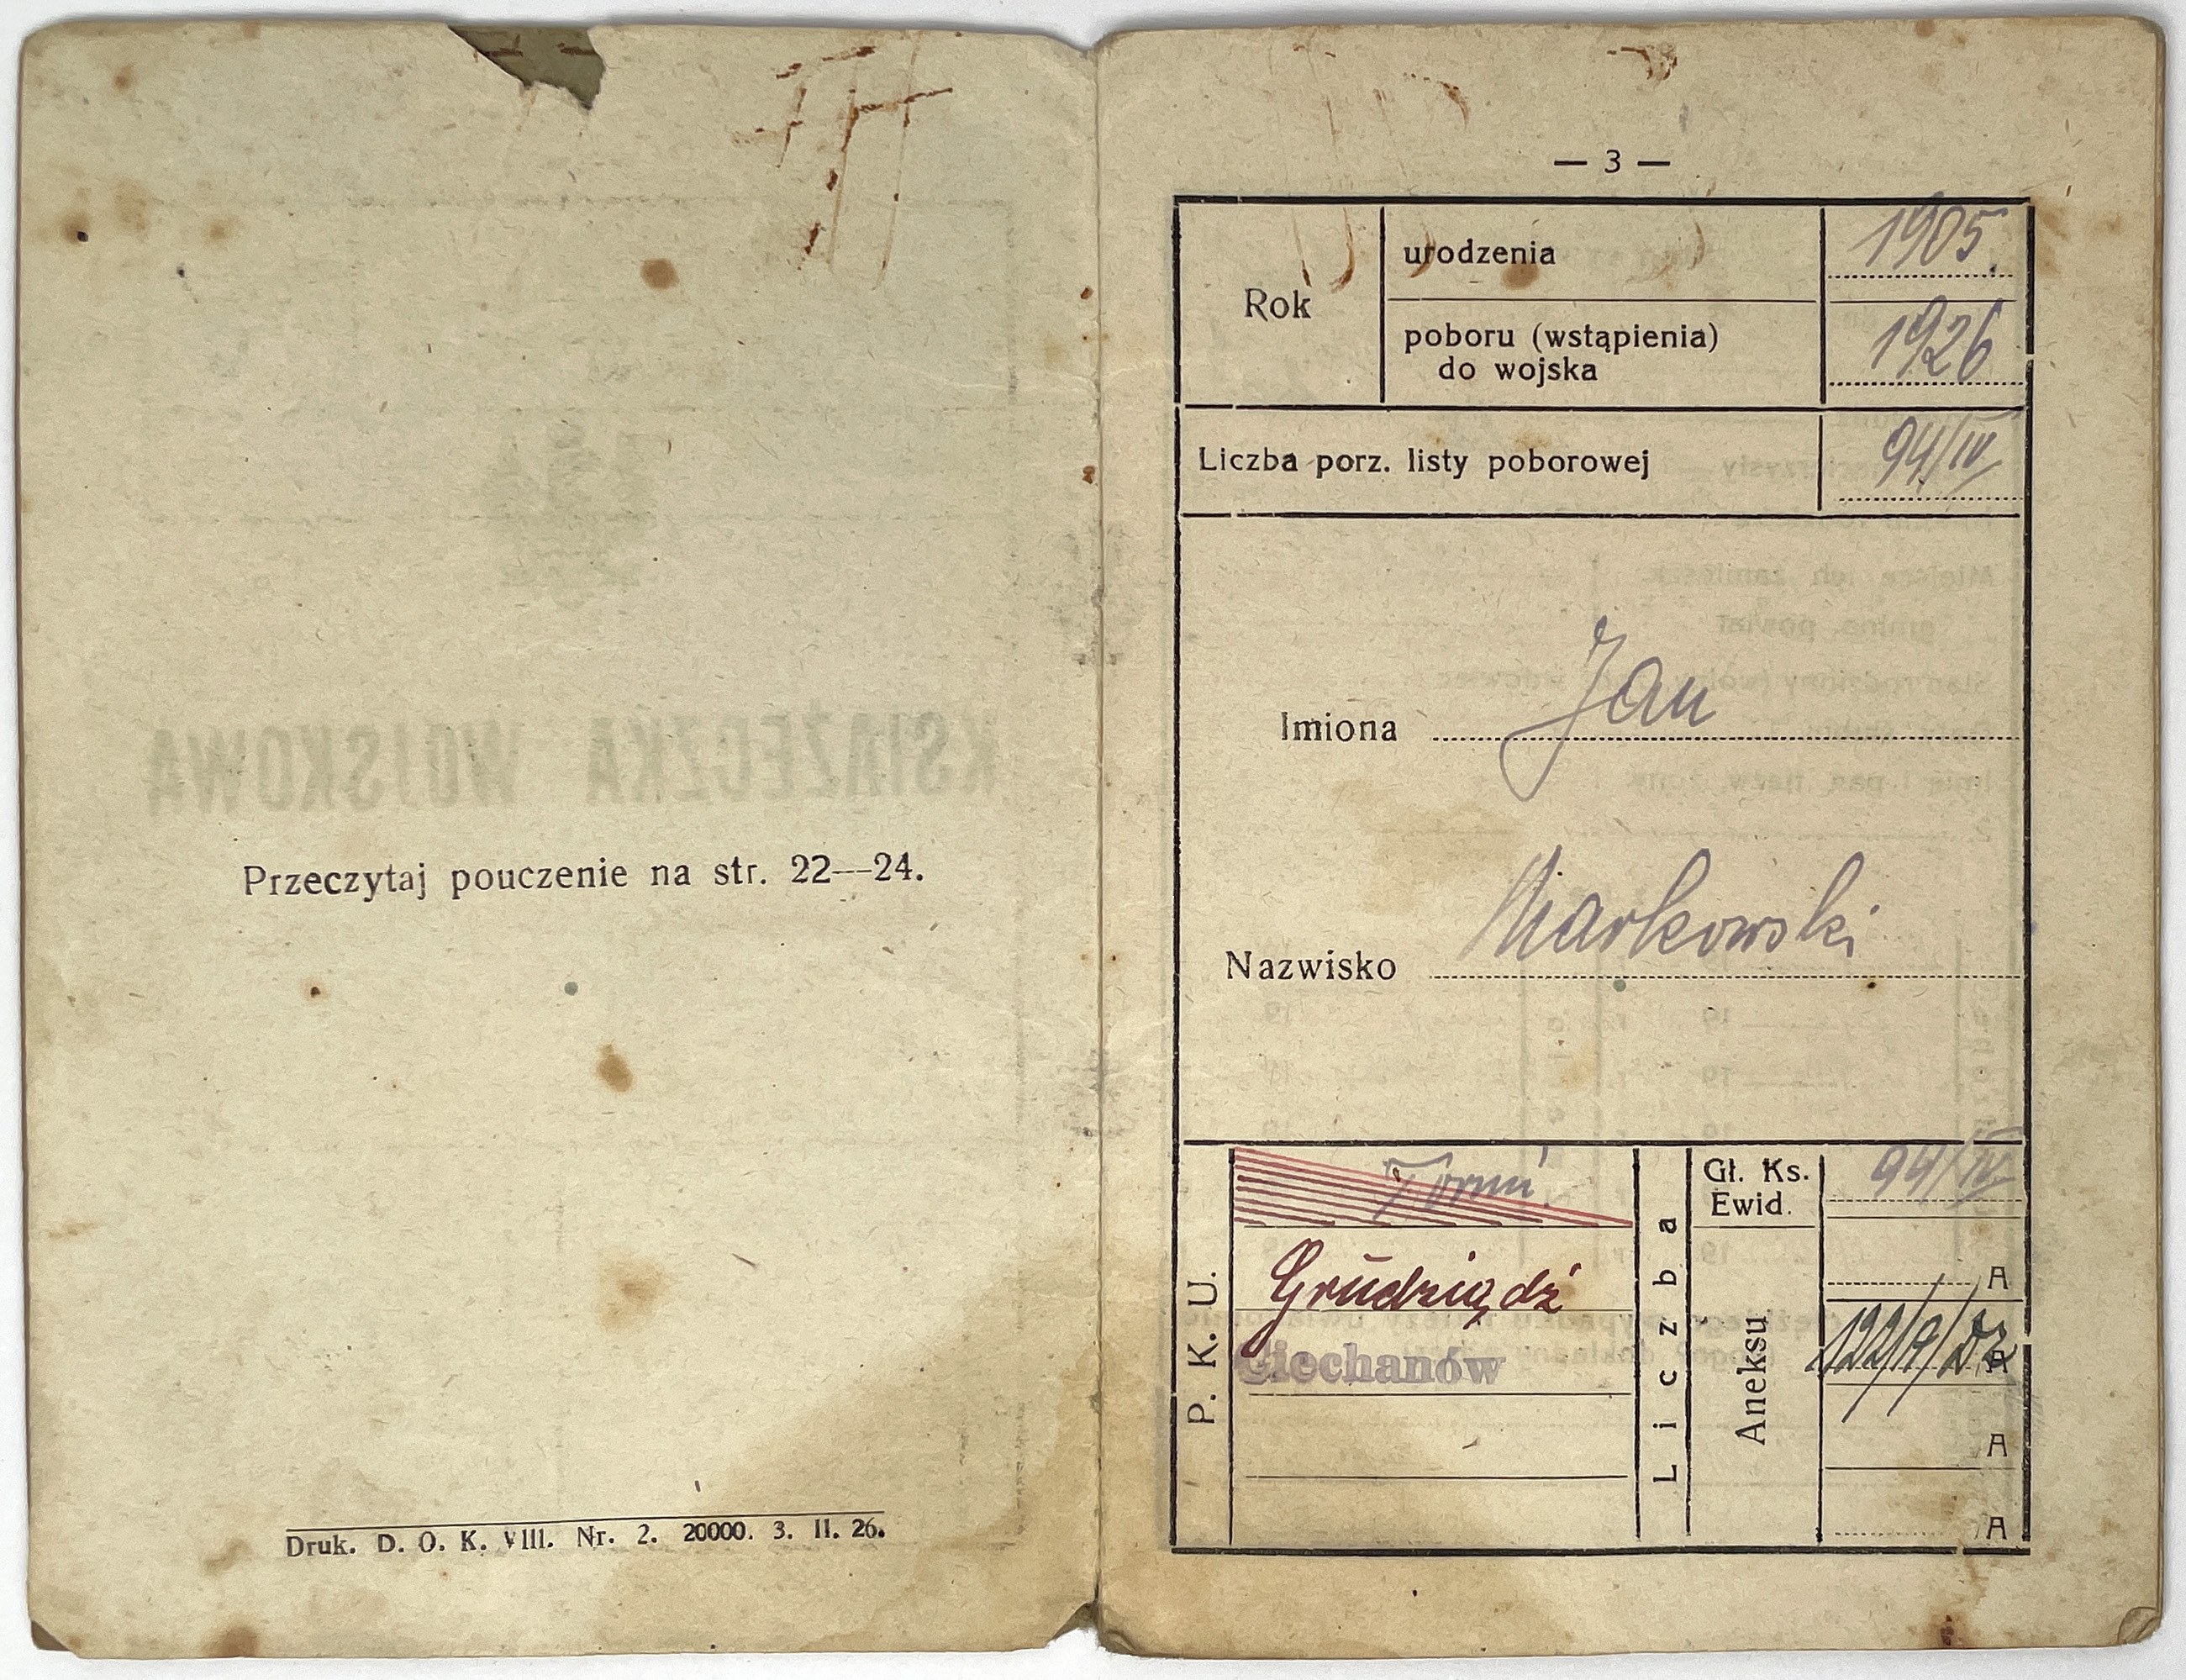 KSIĄŻECZKA WOJSKOWA
Przeczytaj pouczenie na str. 22—24.
Druk. D. O. K. VIII. Nr. 2. 20000. 3. II. 26.
— 3 —
Rok
urodzenia 1905.
poboru (wstąpienia)
do wojska 1926
Liczba porz. listy poborowej 94/IV
Imiona Jan
Nazwisko Markowski
P. K. U.
Toruń.
Grudziądź
Ciechanów
Liczba
Gł. Ks.
Ewid. 94/IV
Aneksu
A
A
A
A